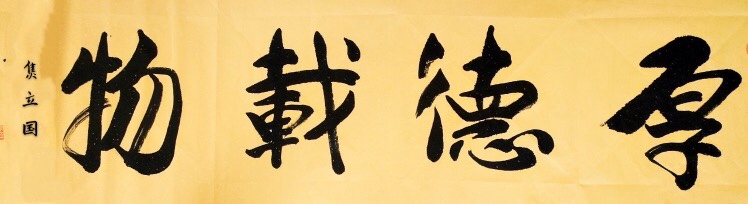 厚德載物
隽立国